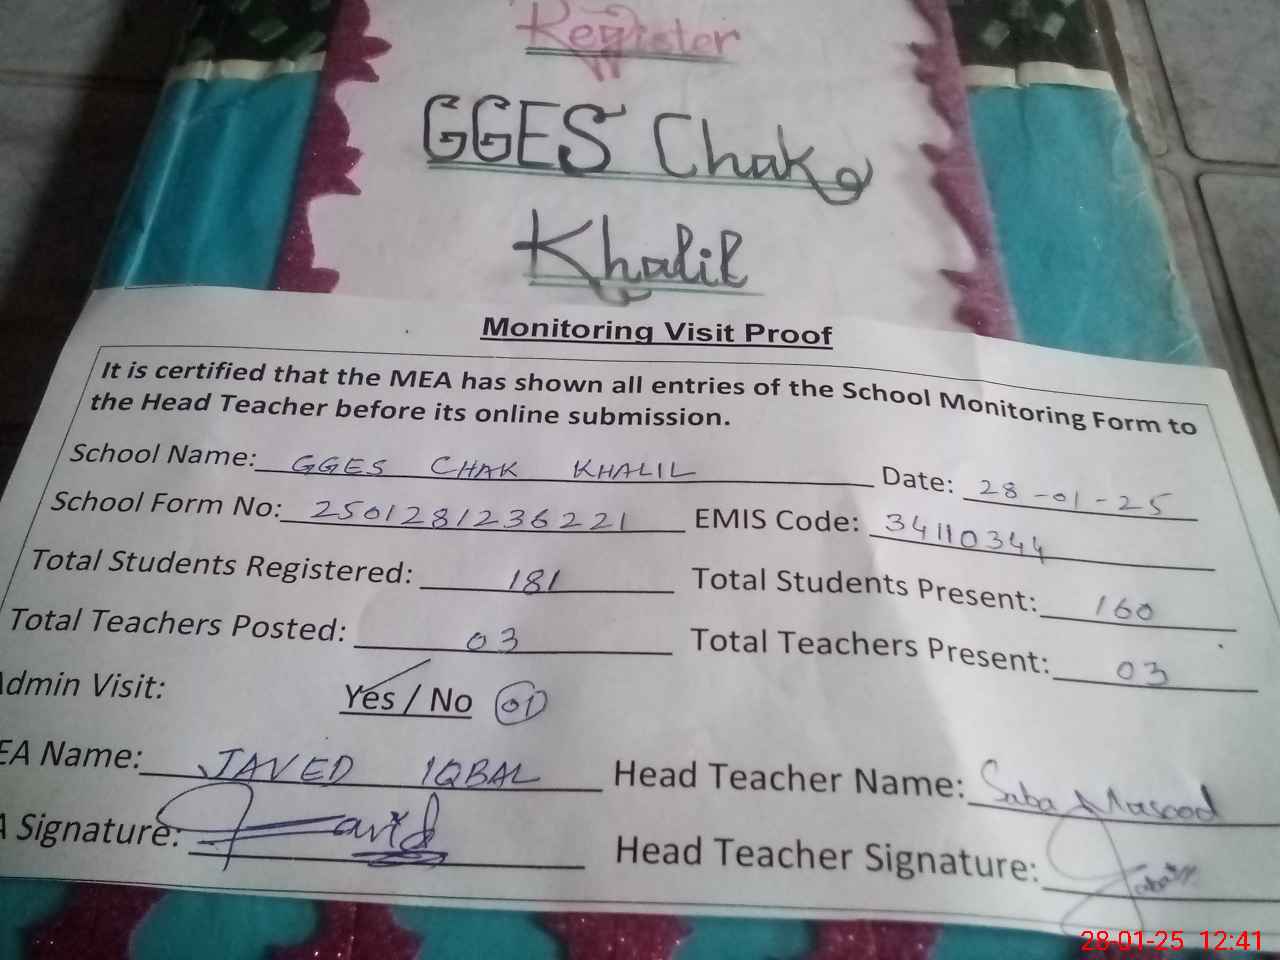 Register
GGES Chak
Khalil
Monitoring Visit Proof
It is certified that the MEA has shown all entries of the School Monitoring Form to
the Head Teacher before its online submission.
School Name: GGES CHAK KHALIL Date: 28-01-25
School Form No: 2501281236221 EMIS Code: 34110344
Total Students Registered: 181 Total Students Present: 160
Total Teachers Posted: 03 Total Teachers Present: 03
Admin Visit: Yes / No 01
EA Name: JAVED IQBAL Head Teacher Name: Saba Masood
A Signature: Javid Head Teacher Signature:
28-01-25 12:41